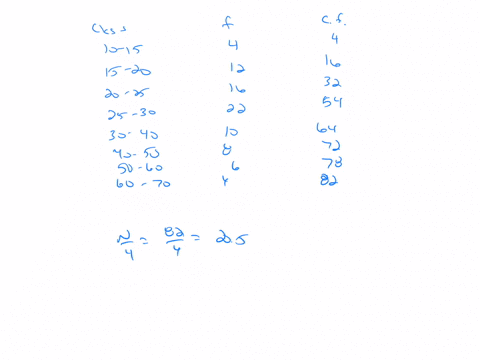 Class f c.f.
10-15 4 4
15-20 12 16
20-25 16 32
25-30 22 54
30-40 10 64
40-50 8 72
50-60 6 78
60-70 4 82
N/4 = 82/4 = 20.5